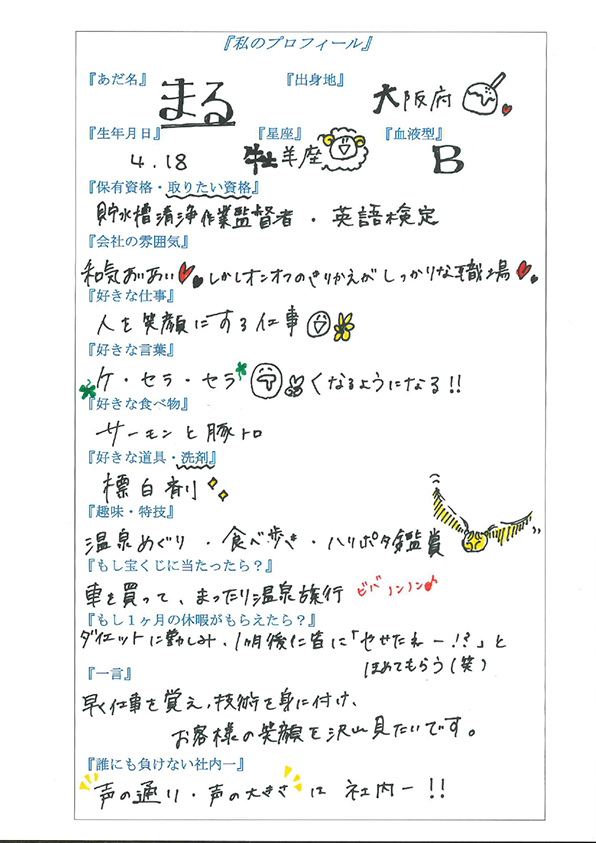 『私のプロフィール』
『あだ名』 『出身地』
まる 大阪府
『生年月日』 『星座』 『血液型』
4.18 牡羊座 B
『保有資格・取りたい資格』
貯水槽清浄作業監督者・英語検定
『会社の雰囲気』
和気あいあい しかしオンオフのきりかえがしっかりな職場
『好きな仕事』
人を笑顔にする仕事
『好きな言葉』
ケ・セラ・セラ くなるようになる!!
『好きな食べ物』
サーモンと豚トロ
『好きな道具・洗剤』
標白剤
『趣味・特技』
温泉めぐり・食べ歩き・ハリポタ鑑賞
『もし宝くじに当たったら?』
車を買って、まったり温泉旅行 ビバノンノン♪
『もし1ヶ月の休暇がもらえたら?』
ダイエットに勤しみ、1ヶ月後に皆に「やせたねー!?」と
ほめてもらう(笑)
『一言』
早く仕事を覚え、技術を身に付け、
お客様の笑顔を沢山見たいです。
『誰にも負けない社内一』
声の通り・声の大きさに社内一!!